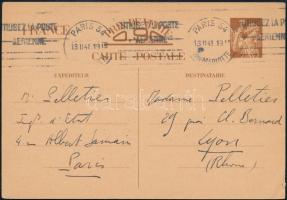 UTILISEZ LA POSTE
AÉRIENNE
PARIS 54
13 II 41 19
UTILISEZ LA POSTE
AÉRIENNE
PARIS 54
13 II 41 19
UTILISEZ LA POSTE
AÉRIENNE
FRANCE
CARTE POSTALE
EXPÉDITEUR
DESTINATAIRE
M. Pelletier
Madame Pelletier
29 Cl. Bernard
4 Albert Samain
Lyon
Paris
(Rhône)